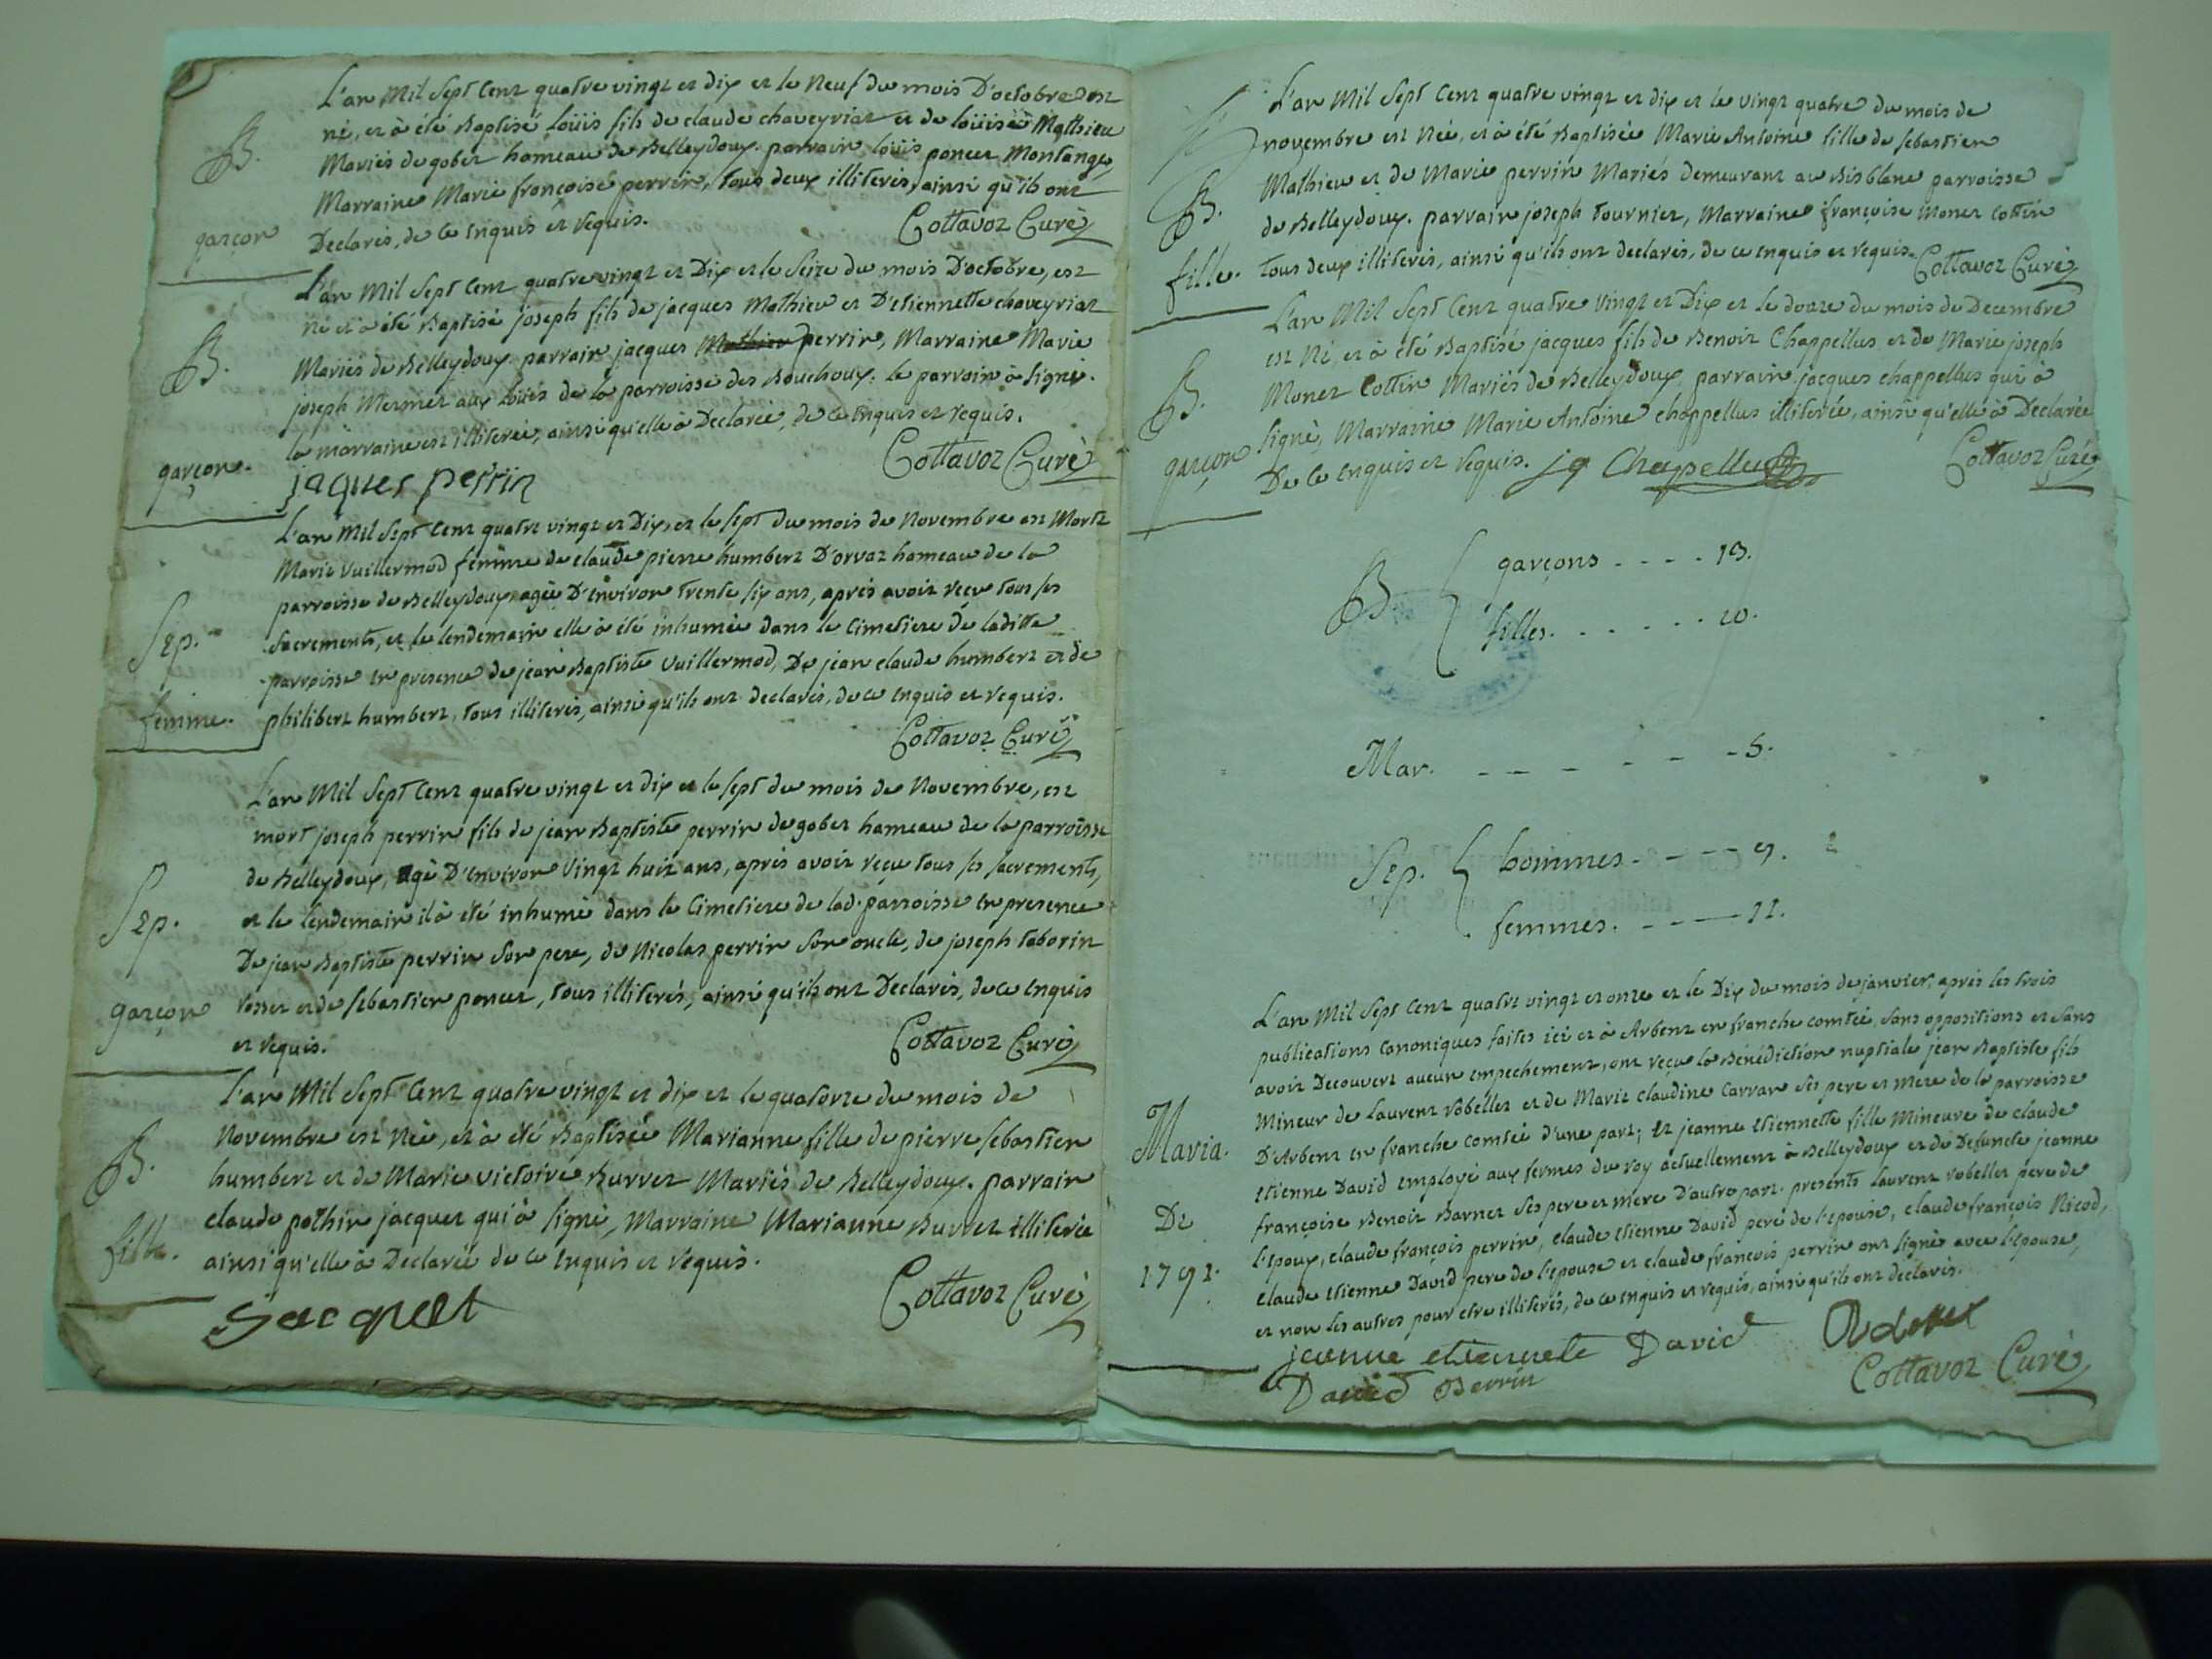 L'an Mil Sept Cent quatre vingt et dix et le Neuf du mois D'octobre est
né, et à été Baptisé Loüis fils de claude chaveyriat et de loüise Mathieu
Mariés de gobet hameau de Belleydoux. parrain loüis poncet Montange,
Marraine Marie françoise perrin, tous deux illiterés, ainsi qu'ils ont
Declarés, de ce enquis et requis.
Cottavoz Curé
B.
garçon
L'an Mil Sept Cent quatre vingt et Dix et le Seize du mois D'octobre, est
né et à été Baptisé joseph fils de jacques Mathieu et D'etiennette chaveyriat
Mariés de Belleydoux. parrain jacques Mathieu perrin, Marraine Marie
joseph Mermet aux loüis de la parroisse des Bouchoux. le parrain à signé.
la marraine est illiterée, ainsi qu'elle à Declarée, de ce enquis et requis.
Cottavoz Curé
jaques perrin
B.
garçon.
L'an Mil Sept Cent quatre vingt et Dix, et le sept du mois de Novembre est Morte
Marie Vuillermod femme de claude pierre humbert D'orvaz hameau de la
parroisse de Belleydoux agée D'environ trente six ans, après avoir reçu tous ses
Sacrements, et le lendemain elle à été inhumée dans le Cimetiere de laditte
parroisse en presence de jean Baptiste Vuillermod, De jean claude humbert et de
philibert humbert, tous illiterés, ainsi qu'ils ont declarés, de ce enquis et requis.
Cottavoz Curé
Sep.
femme.
L'an Mil Sept Cent quatre vingt et dix et le sept du mois de Novembre, est
mort joseph perrin fils de jean Baptiste perrin de gobet hameau de la parroisse
de Belleydoux, agé D'environ Vingt huit ans, après avoir reçu tous ses sacrements,
et le lendemain il à été inhumé dans le Cimetiere de lad. parroisse en presence
De jean Baptiste perrin son pere, de Nicolas perrin son oncle, de joseph taborin
rosset et de sebastien poncet, tous illiterés, ainsi qu'ils ont Declarés, de ce enquis
et requis.
Cottavoz Curé
Sep.
garçon
L'an Mil Sept Cent quatre vingt et dix et le quatorze du mois de
Novembre est Née, et à été Baptisée Marianne fille de pierre sebastien
humbert et de Marie victoire Burret Mariés de Belleydoux. parrain
claude pothin jacquet qui à signé, Marraine Marianne Burret illiterée
ainsi qu'elle à Declarée de ce enquis et requis.
Cottavoz Curé
Jacquet
B.
fille.
L'an Mil Sept Cent quatre vingt et dix et le vingt quatre du mois de
novembre est Née, et à été Baptisée Marie Antoine fille de sebastien
Mathieu et de Marie perrin Mariés demeurant au Bisblanc parroisse
de Belleydoux. parrain joseph tournier, Marraine françoise Monet Cottin
tous deux illiterés, ainsi qu'ils ont declarés, de ce enquis et requis.
Cottavoz Curé
B.
fille.
L'an Mil Sept Cent quatre Vingt et Dix et le douze du mois de Decembre
est Né, et à été Baptisé jacques fils de Benoit Chappellus et de Marie joseph
Monet Cottin Mariés de Belleydoux. parrain jacques chappellus qui à
signé, Marraine Marie Antoine chappellus illiterée, ainsi qu'elle à Declarée
De ce enquis et requis.
jq Chappellus
Cottavoz Curé
B.
garçon
B. garçons - - - - 19.
filles. . . . . . . 10.
Mar. - - - - - - 5.
Sep. hommes. - - - - 9.
femmes. - - - - 11.
L'an Mil Sept Cent quatre vingt et onze et le Dix du mois de janvier, après les trois
publications Canoniques faites ici et à Arbent en franche comtée, sans oppositions et sans
avoir Decouvert aucun empechement, ont reçu la Bénédiction nuptiale jean Baptiste fils
Mineur de Laurent robellet et de Marie claudine Carran ses pere et mere de la parroisse
D'Arbent en franche comtée d'une part; Et jeanne etiennette fille Mineure de claude
etienne David employé aux fermes du roy actuellement à Belleydoux et de Defuncte jeanne
françoise Benoit Barnet ses pere et mere D'autre part. presents laurent robellet pere de
l'epoux, claude françois perrin, claude etienne David pere de l'epouse, claude françois Nicod,
claude etienne David pere de l'epouse et claude françois perrin ont signé avec l'epouse,
et non les autres pour etre illiterés, de ce enquis et requis, ainsi qu'ils ont declarés.
jeanne etiennete David
David Perrin
Cottavoz Curé
Maria.
De
1791.